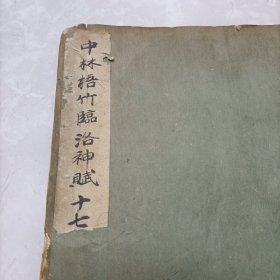 中林梧竹臨洛神賦十七